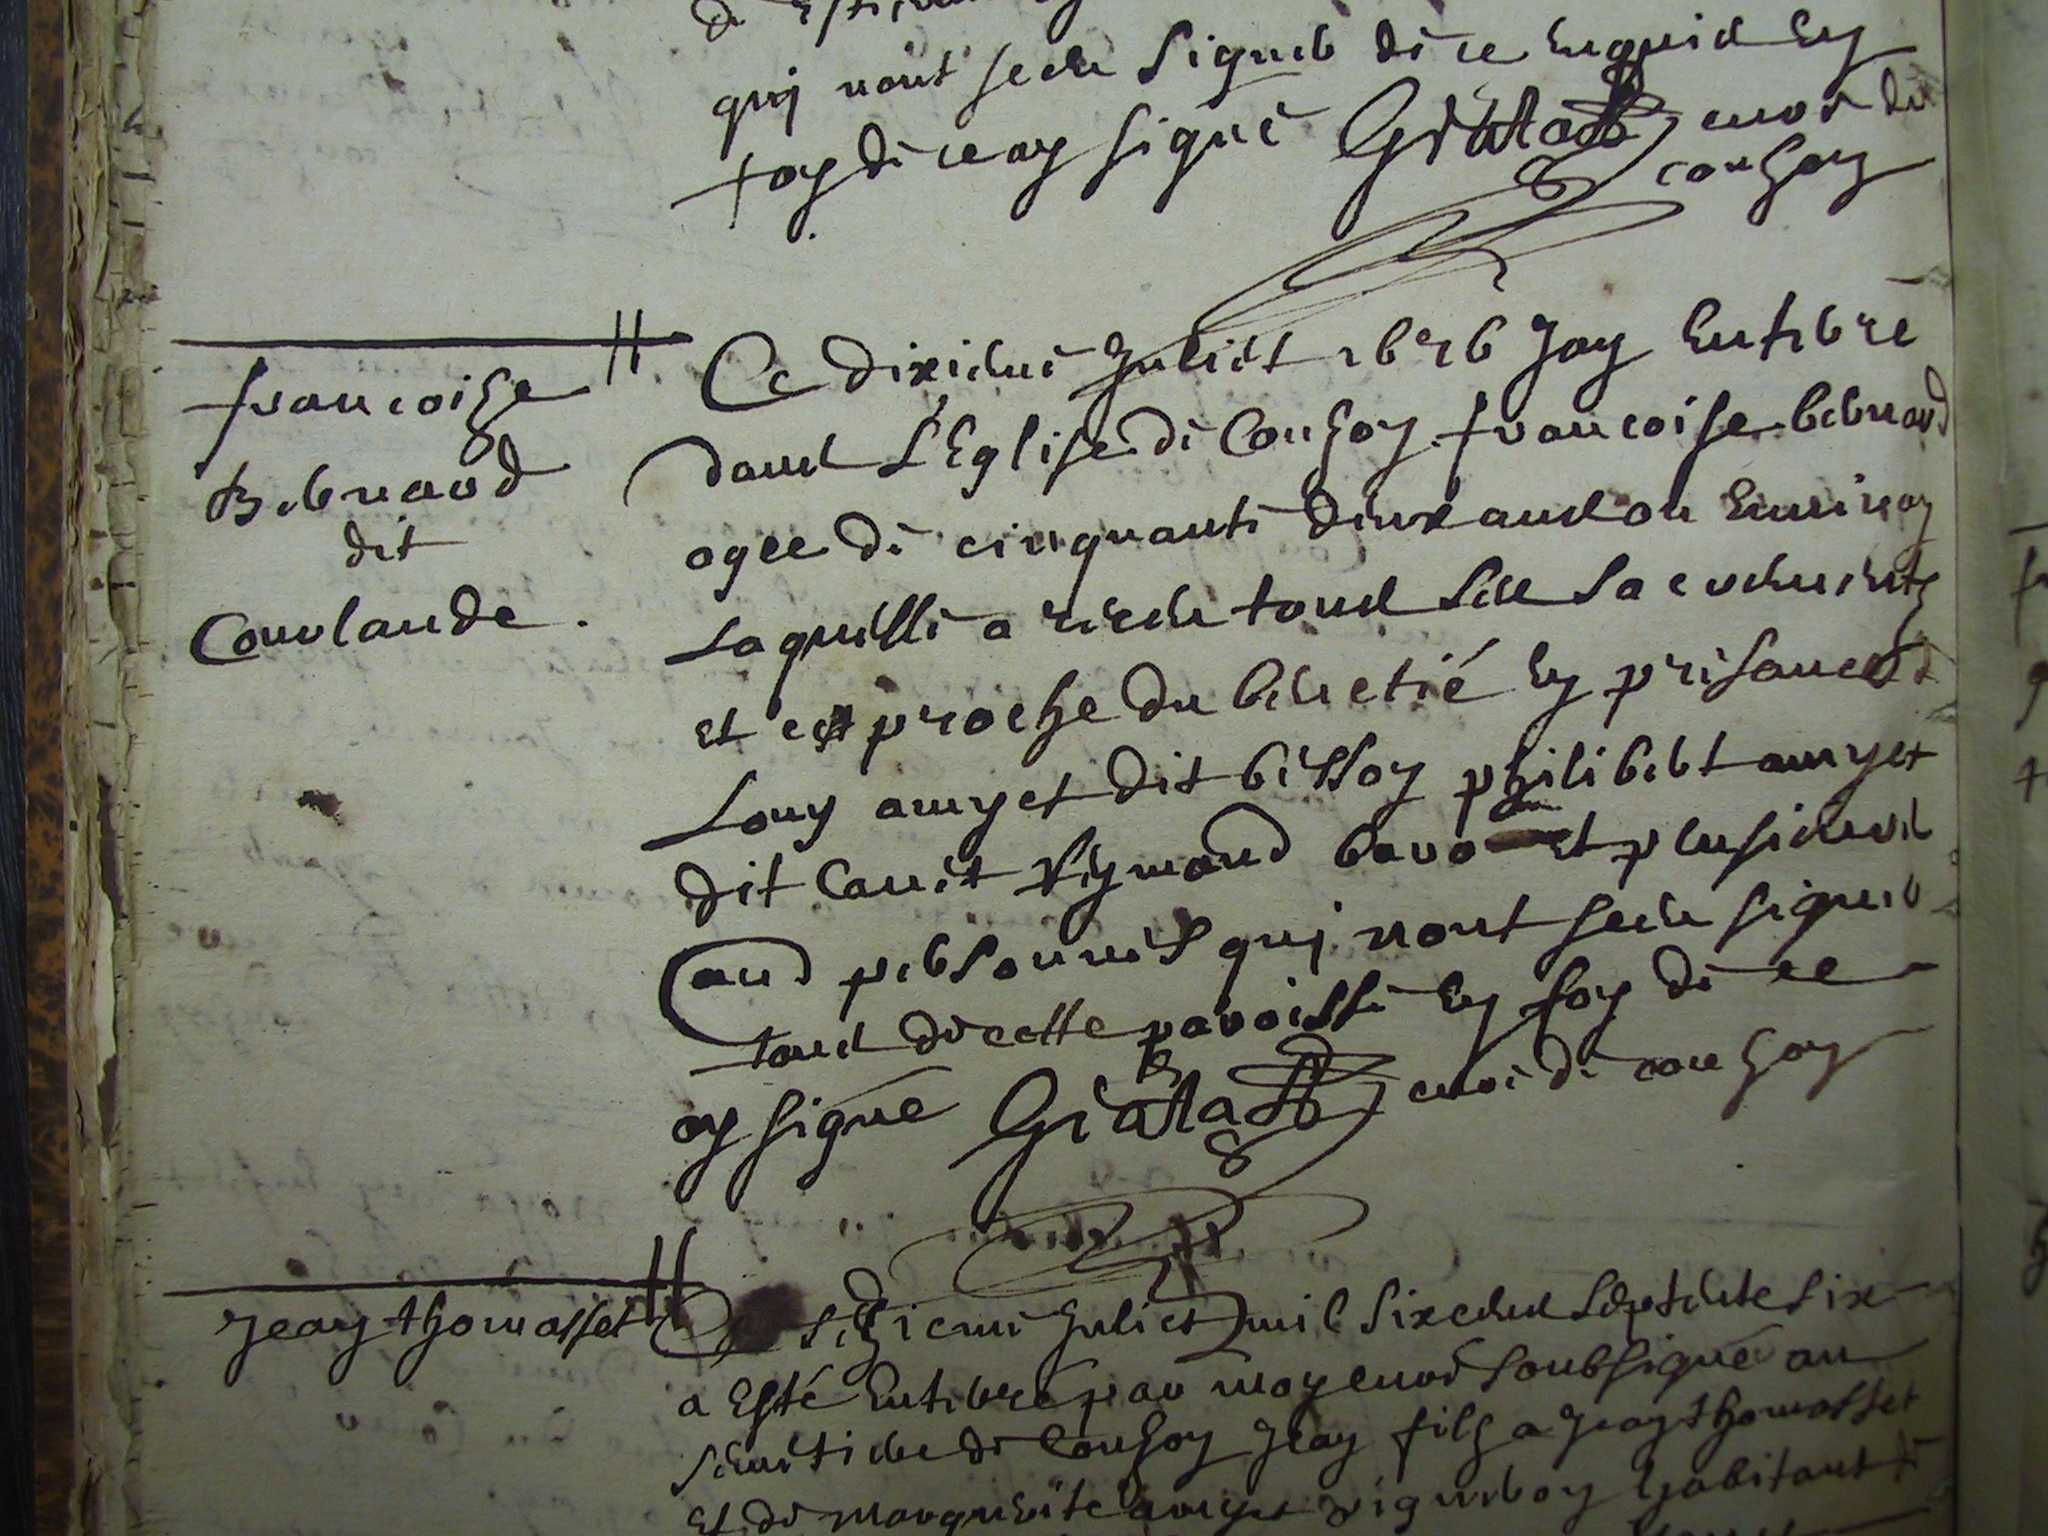 qui nont sceu signer de ce enquis en
foy de ce ay signé Gratard curé de
couzon
francoize
Bernard
dit
Courlande.
Ce dixieme Juliet 1676 Jay enterré
dans L'Eglise de Couzon francoise bernard
agee de cinquante deux ans ou environ
Laquelle a receu tous ses sacrements
et est proche du benetié en presance de
Louy amyet dit besson philibert amyet
dit Canet Reymond bara et plusieurs
aud personnes qui nont sceu signer
tous de cette paroisse en foy de ce
ay signé Gratard curé de couzon
Jean thomasset
Ce seizieme Juliet mil six cens septente six
a Esté enterré par moy curé soubsigné au
semetiere de Couzon Jean filz a Jean thomasset
et de marguerite amyet vigneron habitant de